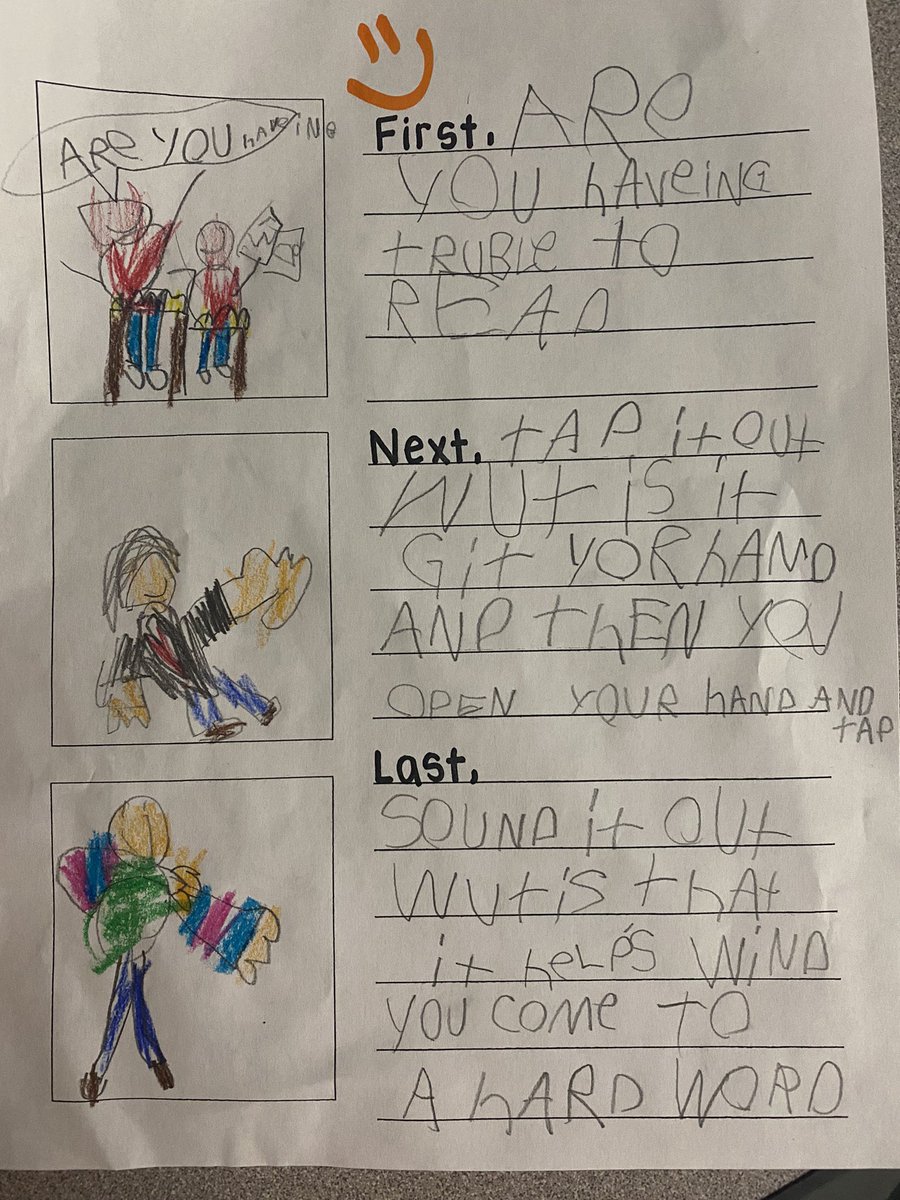 ARe YOU hAveiNG
First. ARe
YOU hAveiNG
tRUBle tO
READ
Next. tAP it OUt
WUt iS it
Git YOR hAND
AND thEN YOU
OPEN YOUR hAND AND
tAP
Last,
SOUND it OUt
WUt iS thAt
it helP'S WiND
YOU COMe tO
A hARD WORD